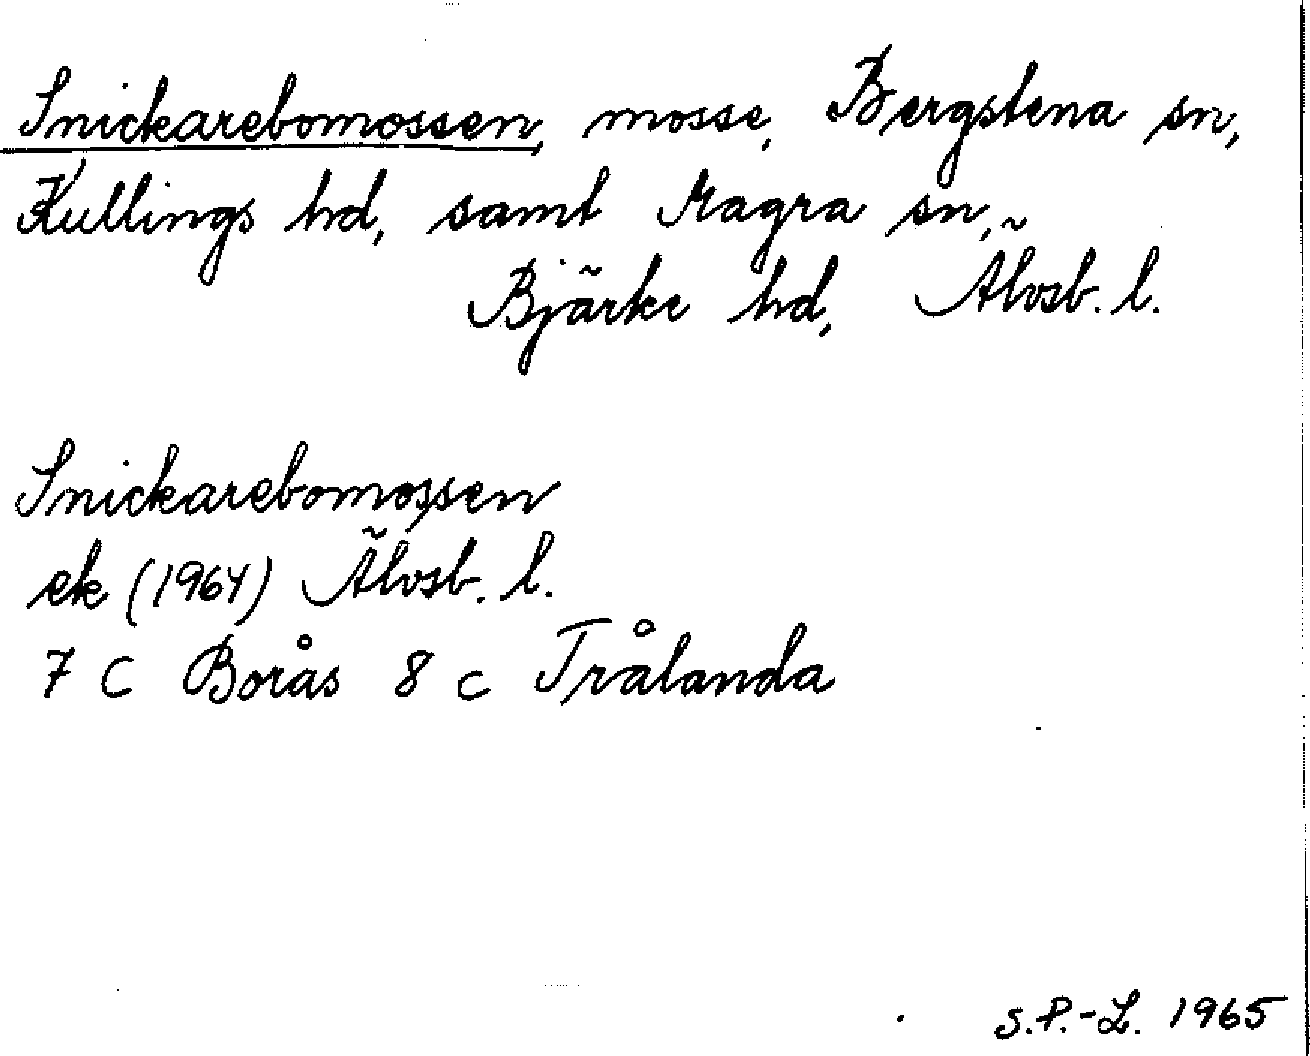 Snickarebomossen, mosse, Bergstena sn,
Kullings hd, samt Magra sn,
Bjärke hd, Älvsb. l.
Snickarebomossen
ek (1964) Älvsb. l.
7 C Borås 8 c Trålanda
S.P.-L. 1965